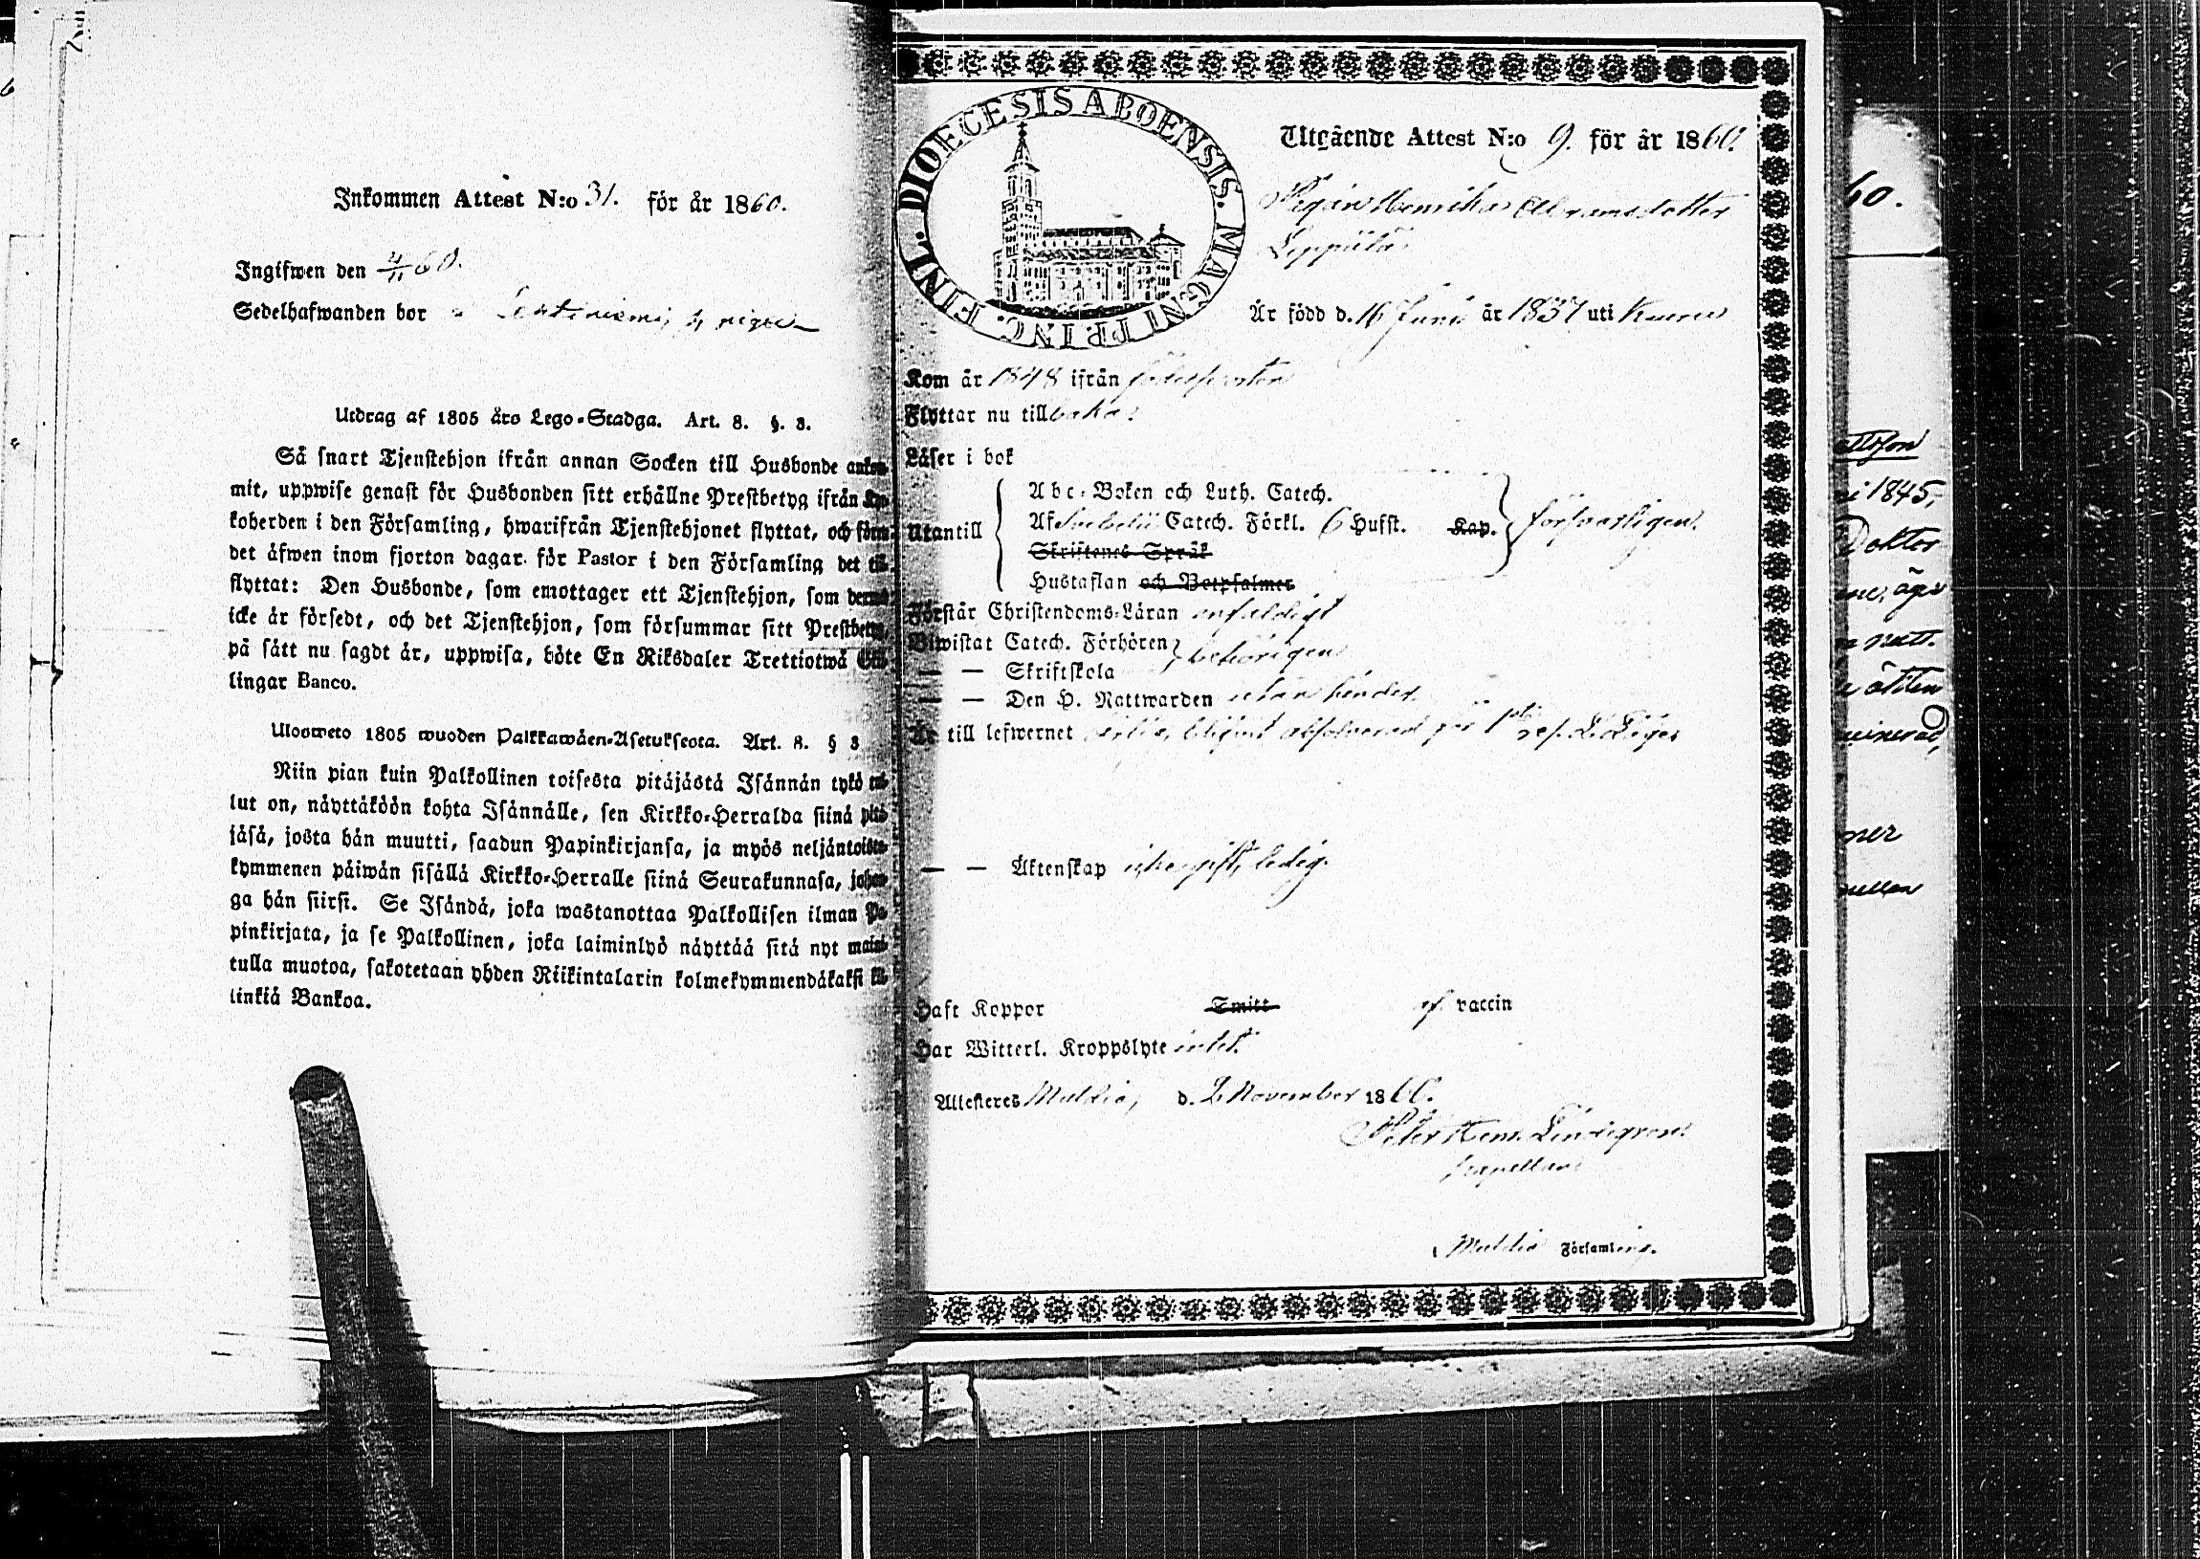 Inkommen Attest N:o 31. för år 1860.
Ingifwen den 4/11 60.
Sedelhafwanden bor
Utdrag af 1805 års Lego-Stadga. Art. 8. §. 3.
Så snart Tjenstehjon ifrån annan Socken till Husbonde ankom-
mit, uppwise genast för Husbonden sitt erhållne Prestbetyg ifrån Kyr-
koherden i den Församling, hwarifrån Tjenstehjonet flyttat, och förete
det äfwen inom fjorton dagar för Pastor i den Församling det till
flyttat: Den Husbonde, som emottager ett Tjenstehjon, som dermed
icke är försedt, och det Tjenstehjon, som försummar sitt Prestbetyg,
på sätt nu sagdt är, uppwisa, böte En Riksdaler Trettiotwå Skil-
lingar Banco.
Uloosweto 1805 wuoden Palkkawäen-Asetuksesta. Art. 8. § 3
Niin pian kuin Palkollinen toisesta pitäjästä Isännän tykö tul-
lut on, näyttäköön kohta Isännälle, sen Kirkko-Herralda siinä pitä-
jäsä, josta hän muutti, saadun Papinkirjansa, ja myös neljäntoista-
kymmenen päiwän sisällä Kirkko-Herralle siinä Seurakunnasa, johon-
ga hän siirsi. Se Isändä, joka wastanottaa Palkollisen ilman Pa-
pinkirjata, ja se Palkollinen, joka laiminlyö näyttää sitä nyt maini-
tulla muotoa, sakotetaan yhden Riikintalarin kolmekymmendäkaksi kil-
linkiä Bankoa.
DIOECESIS ABOENSIS. MAGNI PRINC. FINL.
Utgående Attest N:o 9. för år 1860.
Pigan Henrika Abramsdotter
Leppälä
Är född d. 16 Juni år 1837 uti
Kom år 1848 ifrån födelseorten
Flyttar nu tillbaka.
Läser i bok
Utantill
Abc-Boken och Luth. Catech.
Af Svebelii Catech. Förkl. 6 Hufst. Kap. försvarligen.
Skriftenes Språk
Hustaflan och Botpsalmer
Förstår Christendoms-Läran enfaldigt
Biwistat Catech. Förhören
— — Skriftskola behörigen
— — Den H. Nattwarden utan hinder.
Är till lefwernet
— — Äktenskap icke gift, ledig.
Haft Koppor Smitt af vaccin
Har Witterl. Kroppslyte intet.
Attesteres Muldia, d. 2 November 1860.
Peter Henr. Lindegren
kapellan
Muldia Församling.
60.
i 1845,
Doktor